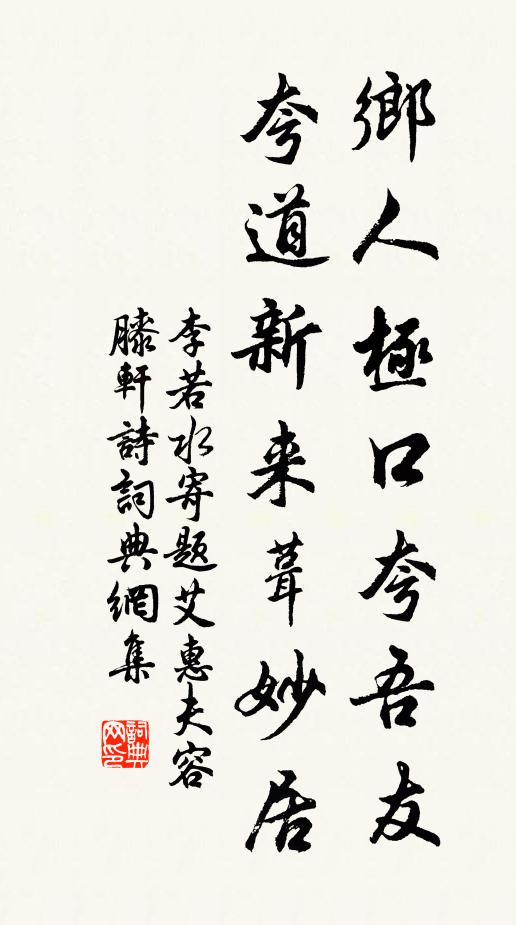 鄉人極口夸吾友
夸道新来葺妙居
李若水寄题艾惠夫容
滕軒詩詞典網集
詞典
网印